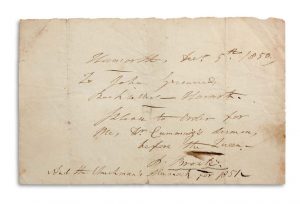 Haworth, Decr. 5th 1850.
To John Greenwood
Bookseller Haworth.
Please to order for
me, Dr Cumming's sermon,
before the Queen.
P. Brontë.
And the Churchman's Almanack for 1851.